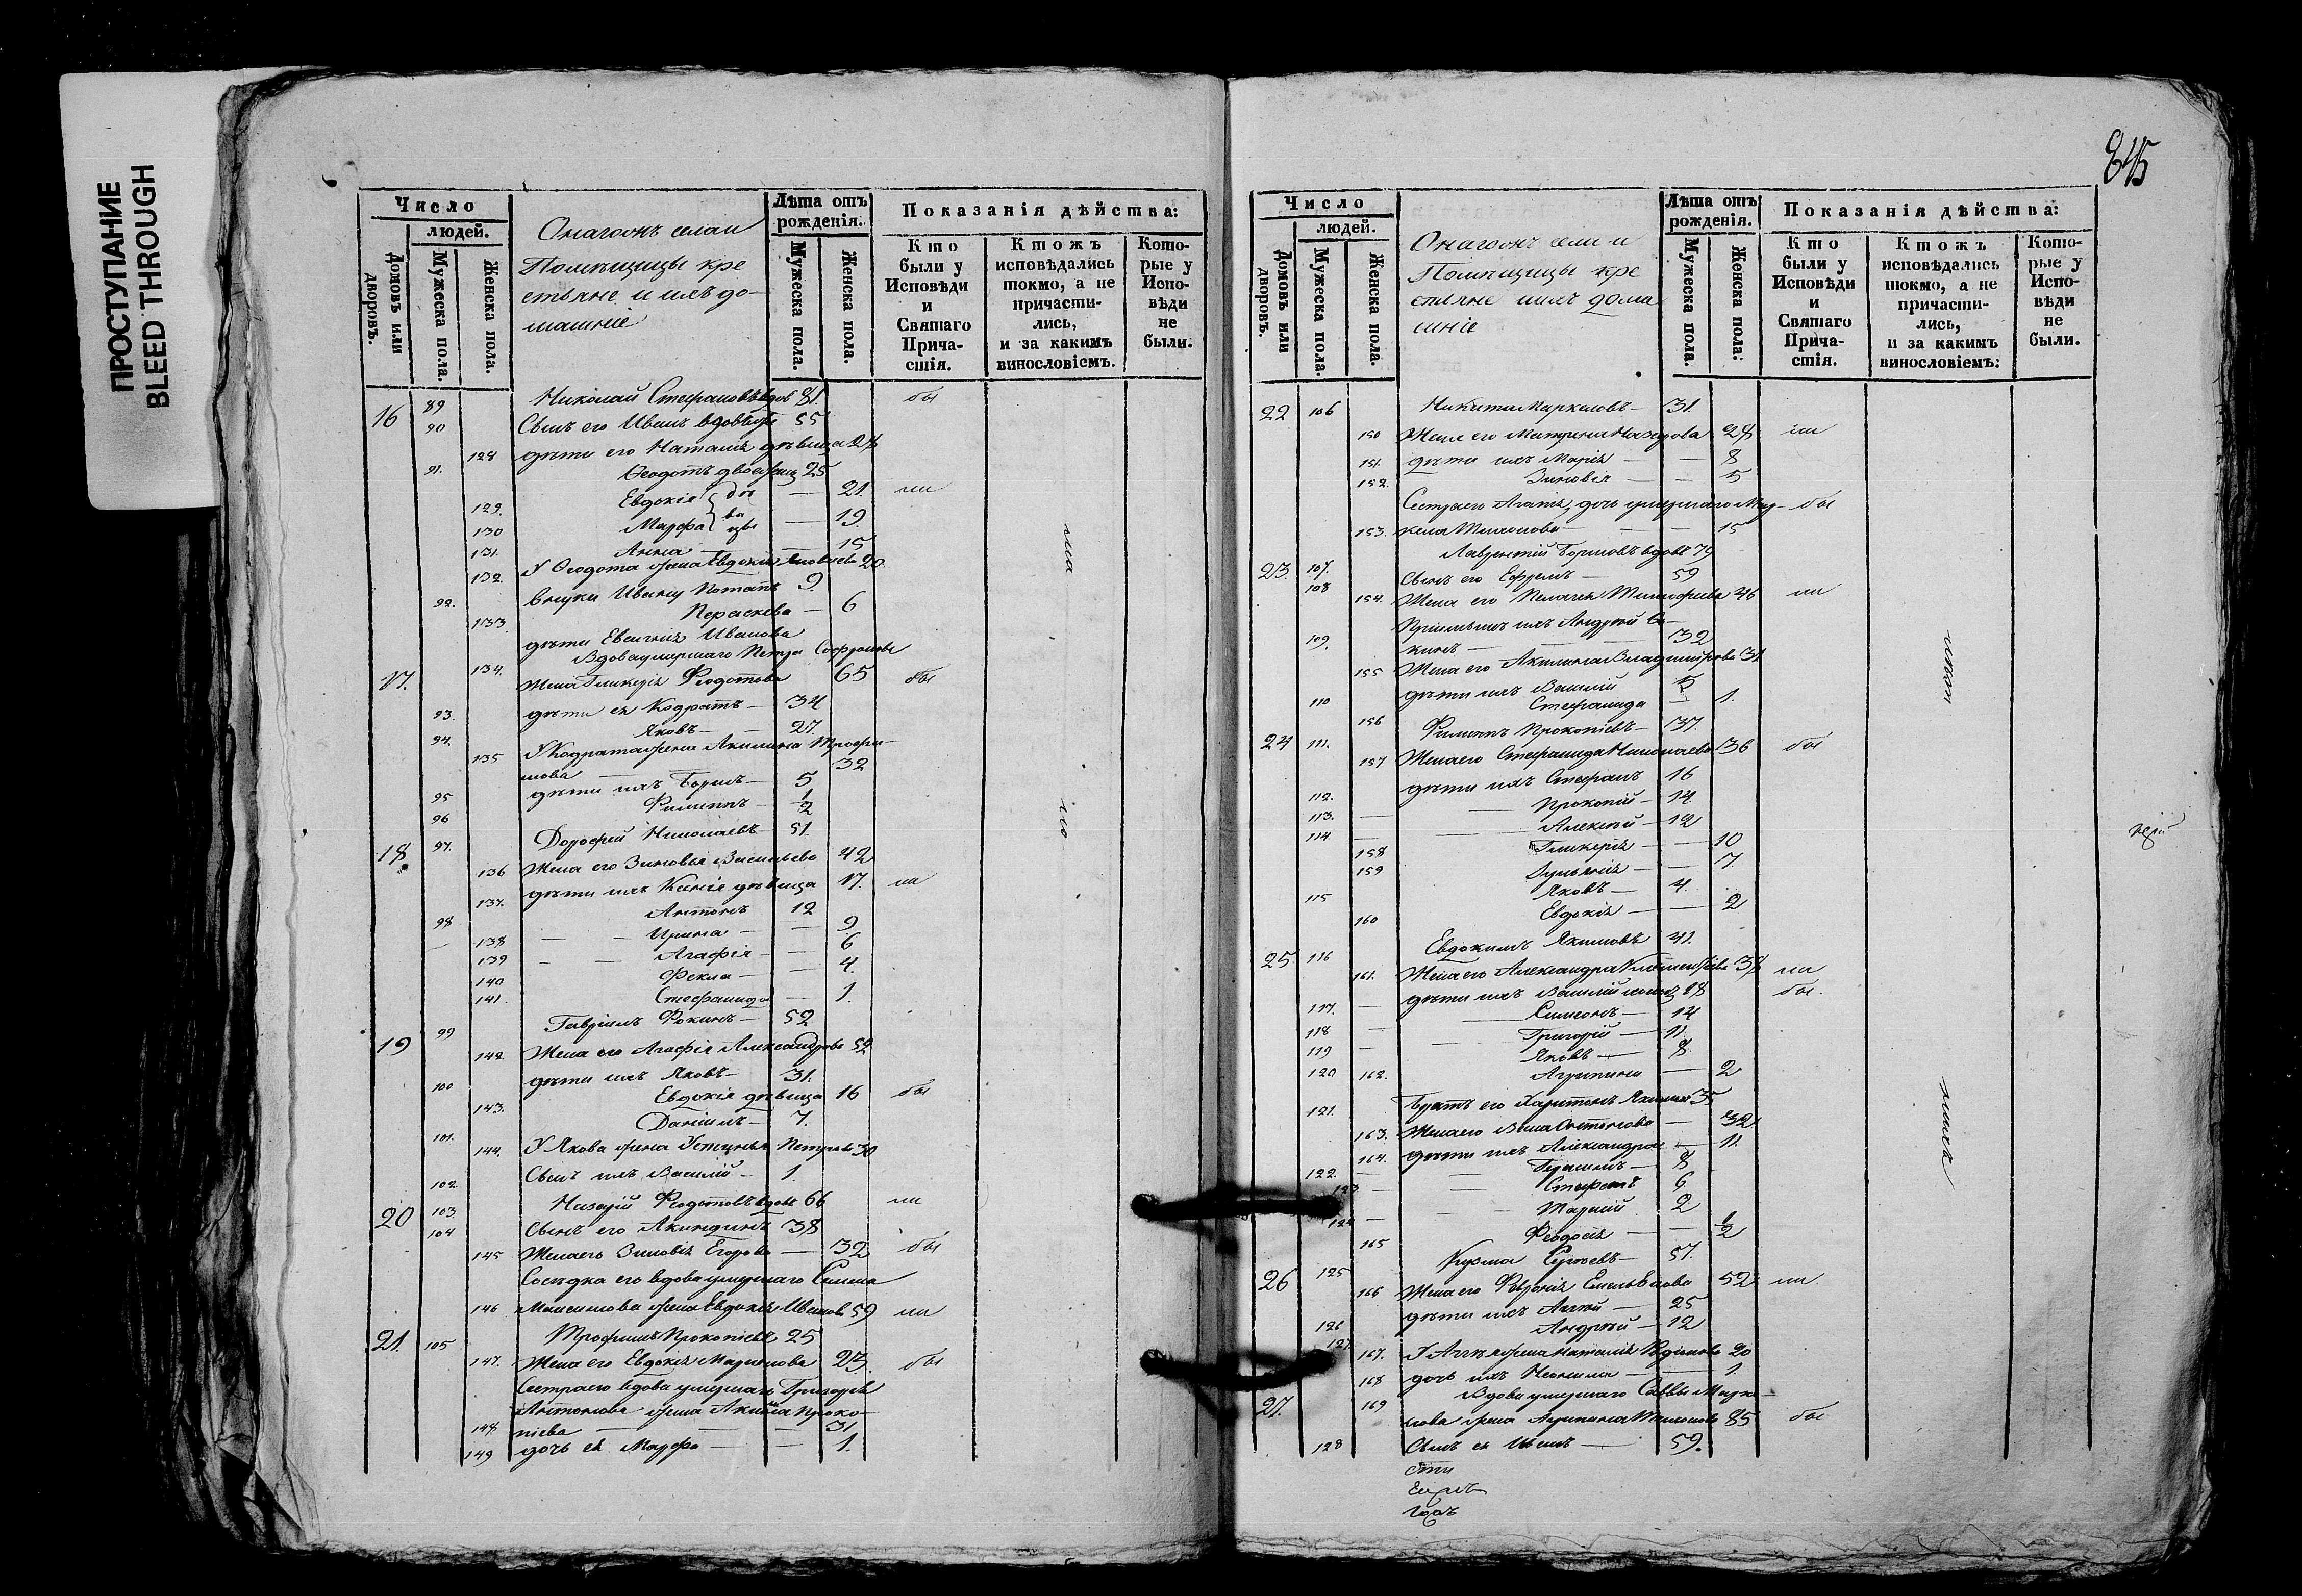 ПРОСТУПАНИЕ
BLEED THROUGH
Число
людей.
Домовъ или дворовъ.
Мужеска пола.
Женска пола.
Онагожъ села и
Помѣщицы кре
стьяне и ихъ до-
машніе
Лѣта отъ рожденія.
Мужеска пола.
Женска пола.
Показанія дѣйства:
Кто были у Исповѣди и Святаго Причастія.
Ктожъ исповѣдались токмо, а не причастились, и за какимъ винословіемъ.
Которые у Исповѣди не были.
16 89 Николай Стефановъ вдов 81. бы
90 Сынъ его Иванъ вдовъ 55
128 дѣти его Наталія дѣвица 28
91. Ѳеодотъ 25
129. Евдокія 21. ли
130 Марфа 19
131. Анна 15
132. У Ѳеодота жена Евдокія Яковлева 20
92. внуки Ивану Потапъ 9
133 Параскева 6
дѣти Евгенія Иванова
Вдова умершаго Петра Софронова
17. 134. жена Гликерія Ѳеодотова 65 бы
93. дѣти ея Кодратъ 34
94. Яковъ 27.
135 У Кодрата жена Акилина Трофи-
мова 32
95 дѣти ихъ Борисъ 5
96 Филиппъ 1/2
18. 97. Дорофей Николаевъ 51.
136 Жена его Зиновія Васильева 42
137. дѣти ихъ Ксенія дѣвица 17. ли
98 Антонъ 12
138 Ирина 9
139 Агафія 6
140 Фекла 4.
141. Стефанида 1.
19 99 Гавріилъ Фокинъ 52
142. Жена его Агафія Александрова 52
100 дѣти ихъ Яковъ 31.
143. Евдокія дѣвица 16 бы
101. Даніилъ 7.
144. У Якова жена Устинья Петрова 30
102. Сынъ ихъ Василій 1.
20 103. Назарій Ѳеодотовъ вдовъ 66 ли
104 Сынъ его Акиндинъ 38
145 Жена его Зиновія Егорова 32 бы
Сосѣдка его вдова умершаго Семена
146 Максимова жена Евдокія Иванова 59 ли
21. 105 Трофимъ Прокопіевъ 25
147. Жена его Евдокія Маркелова 23. бы
Сестра его вдова умершаго Григорія
Антонова жена Акилина Проко-
148 піева 31
149 дочь ея Марфа 1.
845
Число
людей.
Домовъ или дворовъ.
Мужеска пола.
Женска пола.
Онагожъ села и
Помѣщицы кре
стьяне и ихъ дома
шніе
Лѣта отъ рожденія.
Мужеска пола.
Женска пола:
Показанія дѣйства:
Кто были у Исповѣди и Святаго Причастія.
Ктожъ исповѣдались токмо, а не причастились, и за какимъ винословіемъ:
Которые у Исповѣди не были.
22 106 Никита Маркеловъ 31.
150 Жена его Матрена Назарова 28 ли
151. дѣти ихъ Марія 8
152. Зиновія 5
Сестра его Агафія, дочь умершаго Мар- бы
153. кела Тихонова 15
23. 107. Лаврентій Борисовъ вдовъ 79
108 Сынъ его Ефремъ 59
154. Жена его Пелагея Тимофеева 46 ли
Пріемышъ ихъ Андрей
109. 32
155 Жена его Акилина Владимірова 31
110 дѣти ихъ Василій 5
156 Стефанида 1.
24 111. Филиппъ Прокопіевъ 37.
157 Жена его Стефанида Николаева 36 бы
112. дѣти ихъ Стефанъ 16
113. Прокопій 14
114 Алексѣй 12
158 Гликерія 10
159 Іуліанія 7.
115 Яковъ 4.
160 Евдокія 2
25 116 Евдокимъ Якимовъ 41.
161. Жена его Александра Климентіева 38 ли
117. дѣти ихъ Василій 18 бы.
118 Симеонъ 14
119 Григорій 11.
120 Яковъ 8.
162. Агрипина 2
121. Братъ его Харитонъ Якимовъ 35
163. Жена его Антонова 32
164. дѣти ихъ Александра 11.
122. Герасимъ 8
123. Стефанъ 6
124 2
165 Ѳеодосія 1/2
26 125 Кузма Сергѣевъ 57.
166 Жена его Февронія Емельянова 52 ли
126 дѣти ихъ Аггей 25
127. Андрей 12
167. У Аггея жена Наталія Родіонова 20
168 дочь ихъ Неонила 1.
27. 169 Вдова умершаго Саввы Марке-
лова жена Агрипина Тихонова 85 бы
128 Сынъ ея Иванъ 59.